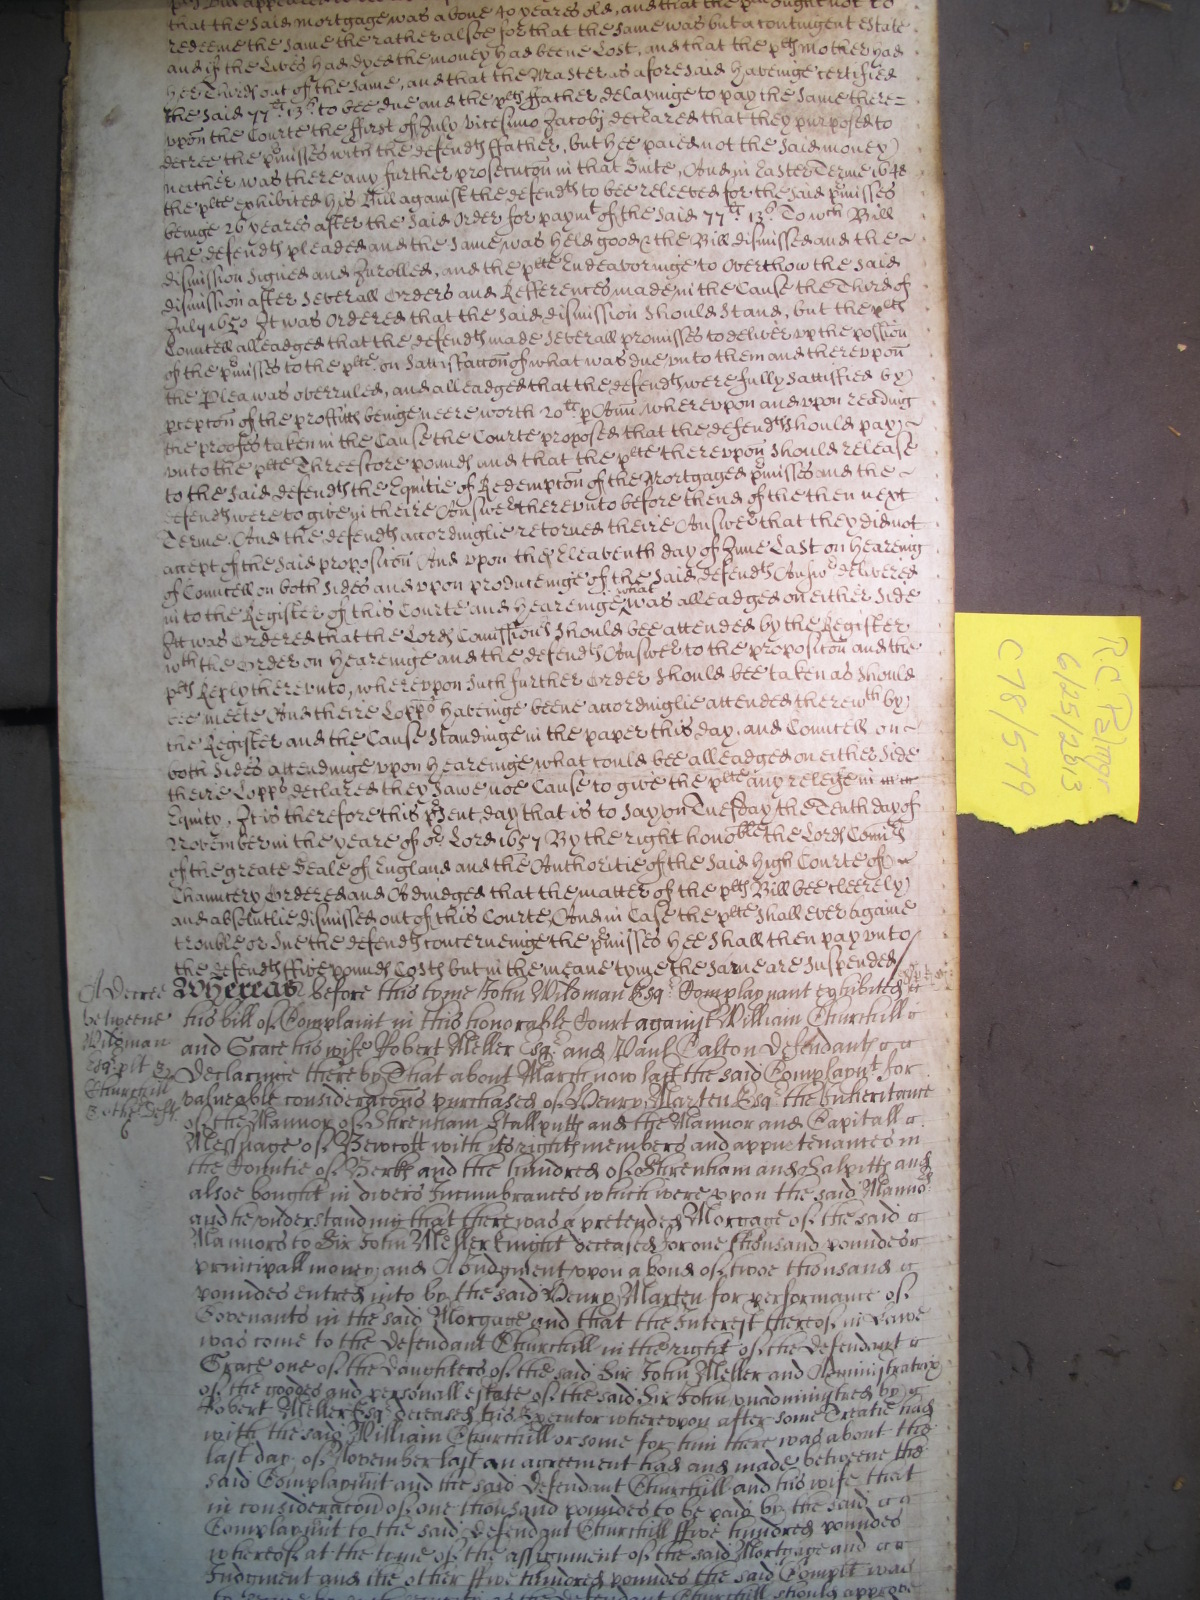 that the said mortgage was above 40 yeares old, and that the plt ought not to
redeeme the same the rather alsoe for that the same was but a contingent estate
and if the Lives had dyed the money had beene Lost, and that the plts mother had
her Thirds out of the same, and that the Master as aforesaid haveinge certified
the said 77li 13s to bee due and the plts ffather delayinge to pay the same there=
vpon the Courte the ffirst of July vicesimo Jacobj declared that they purposed to
decree the pmisses with the defendts ffather, but hee paied not the said money
neither was there any further prosecucon in that Suite, And in Easter Terme 1648
the plte exhibited his Bill against the defendts to bee releeved for the said pmisses
beinge 26 yeares after the said Order for paymt of the said 77li 13s To wch Bill
the defendts pleaded and the same was held good & the Bill dismissed and the
dismission Signed and Inrolled, and the plte Endeavoringe to Overthow the said
dismission after Severall Orders and Refferences made in the Cause the Third of
July 1650 It was Ordered that the said dismission should stand, but the plts
Councell alleadged that the defendts made severall promisses to deliver vp the possion
of the pmisses to the plte on sattisfaccon of what was due vnto them and therevpon
the Plea was overruled, and alleadged that the defendts were fully sattisfied by
pcepcon of the proffitts beinge neere worth 20li p Ann wherevpon and vpon reading
the proofes taken in the Cause the Courte proposed that the defendts should pay
vnto the plte Threescore pounds and that the plte therevpon should release
to the said defendts the Equitie of Redempcon of the Mortgaged pmisses and the
defendts were to give in theire Answer therevnto before thend of the then next
Terme. And the defendts accordinglie retorned theire Answer that they did not
accept of the said proposicon And vpon the Eleaventh day of June Last on hearing
of Councell on both sides and vpon produceinge of the said defendts Answer delivered
in to the Register of this Courte and heareinge what was alleadged on either side
It was Ordered that the Lords Comissionrs should bee attended by the Register
wth the Order on heareinge and the defendts Answer to the proposicon and the
plts Reply therevnto, wherevpon such further Order should bee taken as should
bee meete And theire Lopps haveinge beene accordinglie attended therewth by
the Register and the Cause standinge in the paper this day, and Councell on
both sides attendinge vpon heareinge what could bee alleadged on either side
theire Lopps declared they sawe noe Cause to give the plte any releife in
Equity, It is therefore this psent day that is to say on Tuesday the Tenth day of
November in the yeare of or Lord 1657 By the right honoble the Lords Comrs
of the greate Seale of England and the Authoritie of the said high Courte of
Chauncery Ordered and Adiudged that the matter of the plts Bill bee cleerely
and absolutlie dismissed out of this Courte, And in Case the plte shall ever againe
trouble or sue the defendts concerneinge the pmisses hee shall then pay vnto
the defendts ffive pounds Costs but in the meane tyme the same are suspended
A Decree
betweene
Wildman
Esq plt &
Churchill
& othrs Defts
6
Whereas before this tyme John Wildman Esqr Complaynant exhibited
his bill of Complaint in this honorable Court against William Churchill
and Grace his wife Robert Meller Esqr and Paul Calton Defendants
Declaringe thereby That about March now last the said Complaynt for
valueable consideracons purchased of Henry Marten Esqr the Inheritance
of the Mannor of Shrenham Stallputts and the Mannor and Capitall
Messuage of Bewcott with its rights members and appurtenances in
the Countie of Berks and the hundred of Shrenham and Salputts and
alsoe bought in divers Incumbrances which were vpon the said Mannors
and he vnderstanding that there was a pretended Morgage of the said
Mannors to Sir John Meller knight deceased for one thousand poundes
principall money and A Iudgment vpon a bond of twoe thousand
poundes entred into by the said Henry Marten for performance of
Covenants in the said Morgage and that the Interest thereof in Lawe
was come to the defendant Churchill in the right of the defendant
Grace one of the daughters of the said Sir John Meller and Administratrix
of the goodes and personall estate of the said Sir John vnadministred by
Robert Meller Esqr deceased his Executor wherevpon after some Treatie had
with the said William Churchill or some for him there was about the
last day of November last an agreement had and made betweene the
said Complaynnt and the said Defendant Churchill and his wife that
in consideracon of one thousand poundes to be paid by the said
Complaynnt to the said defendant Churchill ffive hundred poundes
whereof at the tyme of the assignment of the said Mortgage and
Judgment and the other ffive hundred poundes the said Complt was
R.C. Palmer
6/25/2013
C78/579